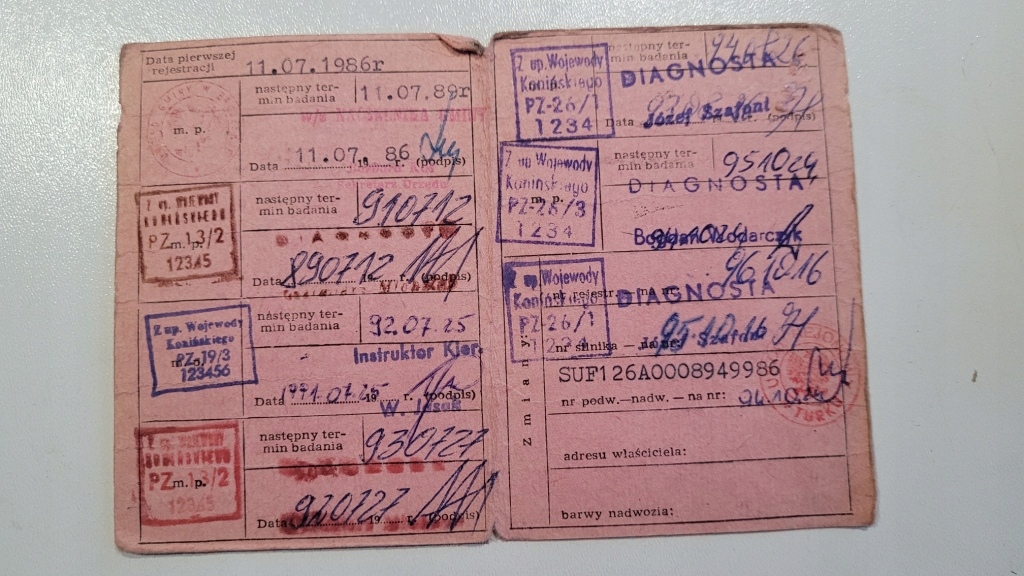 Data pierwszej
rejestracji 11.07.1986r
następny ter-
min badania 11.07.89r
m. p.
Data 11.07. 19 86 r. (podpis)
Z up. WOJEWODY
KONIŃSKIEGO
PZ 13/2
m. p.
12345
następny ter-
min badania 910712
DIAGNOSTA
Data 890712 19 r. (podpis)
Z up. Wojewody
Konińskiego
PZ-19/3
123456
następny ter-
min badania 92.07.25
Instruktor Kier.
Data 1991.07.25 19 (podpis)
PZ 13/2
m. p.
12345
następny ter-
min badania 930727
Data 920727 19 r. (podpis)
Z up. Wojewody
Konińskiego
PZ-26/1
1234
następny ter-
min badania
DIAGNOSTA
Data Józef (podpis)
Z up. Wojewody
Konińskiego
m. p.
PZ-26/3
1234
następny ter-
min badania 951024
DIAGNOSTA
Bogdan Włodarczyk
Z up. Wojewody
Konińskiego
PZ-26/1
1234
961016
DIAGNOSTA
nr rejestr. — na nr:
951016
nr silnika — na nr:
Zmiany:
SUF126A0008949986
nr podw.—nadw. — na nr: 941024
adresu właściciela:
barwy nadwozia: